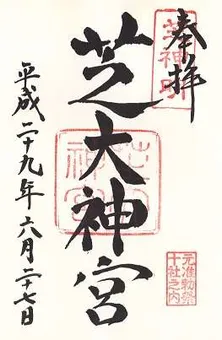 奉拝
芝大神宮
平成二十九年六月二十七日
元准勅祭
十社之内